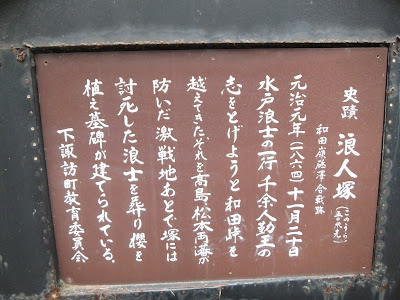 史蹟 浪人塚 (このうら)
和田嶺砥澤合戦跡
元治元年(一八六四)十一月二十日
水戸浪士の一行千余人勤王の
志をとげようと和田峠を
越えてきた。それを高島、松本両藩が
防いだ激戦地あとで塚には
討死した浪士を葬り櫻を
植え墓碑が建てられている。
下諏訪町教育委員会